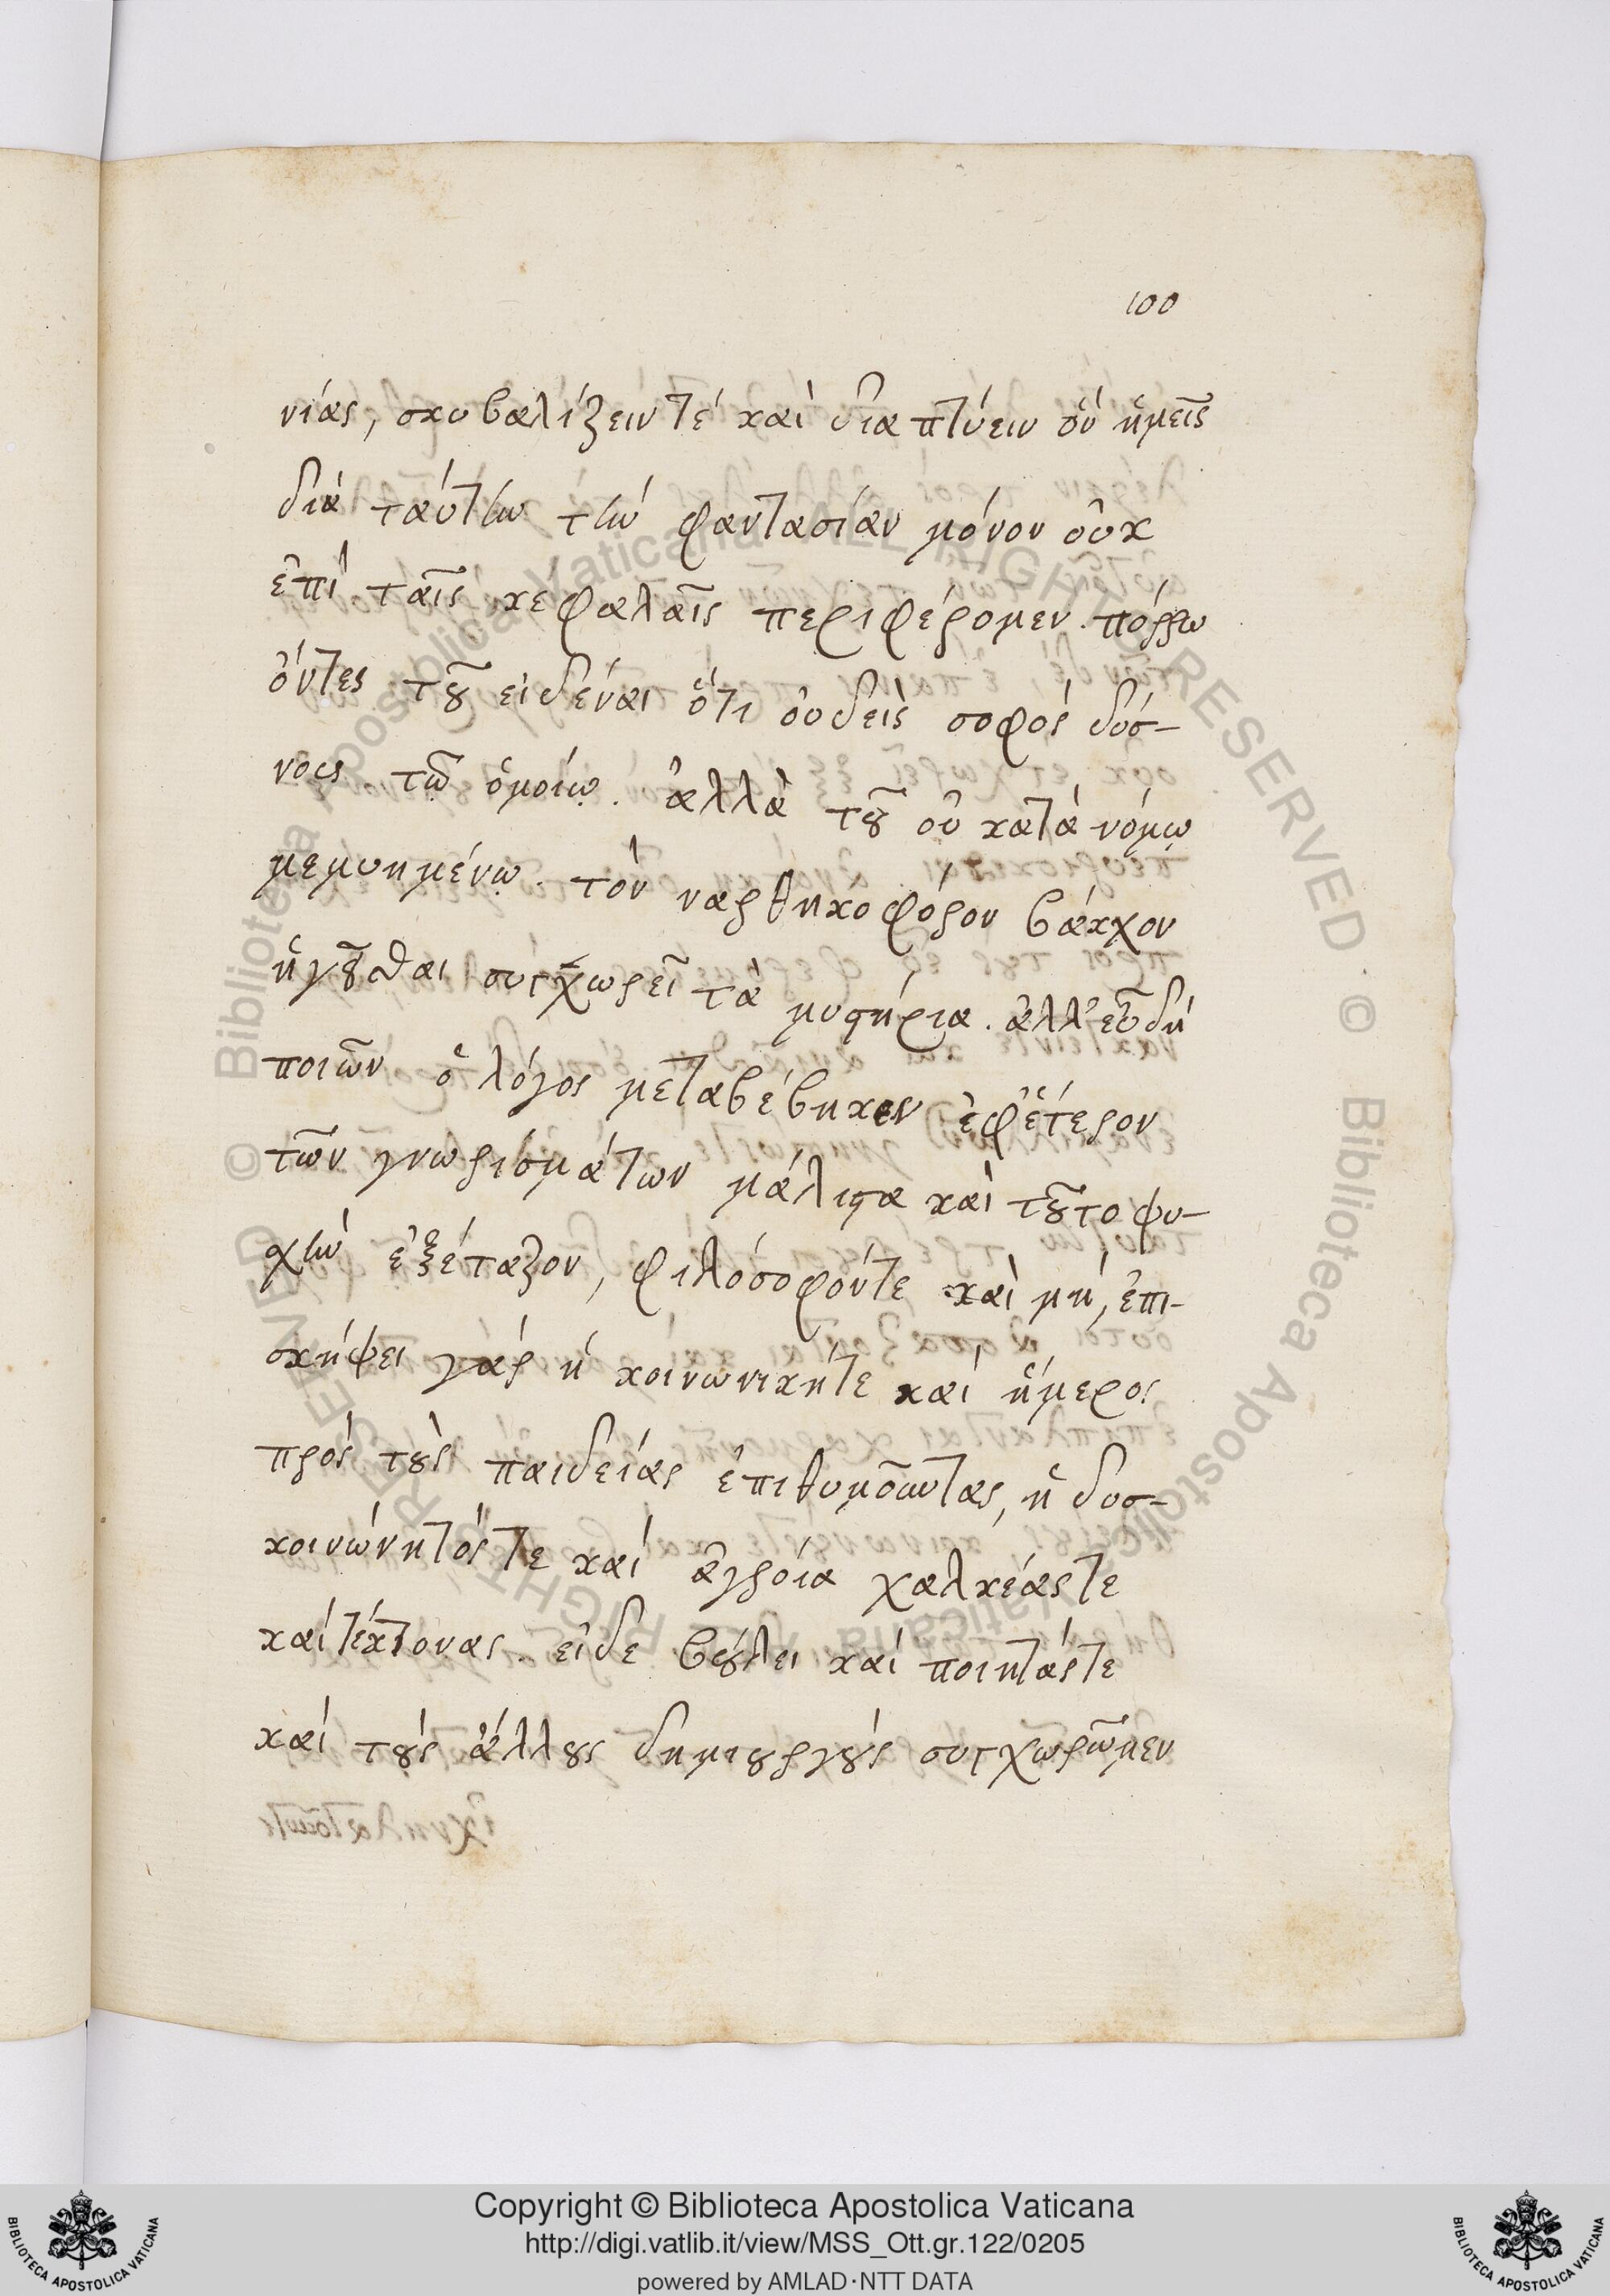 100
νίας, σκυβαλίζειν τέ καὶ διαπτύειν ὅν ἡμεῖς
διὰ ταύτην τὴν φαντασίαν μόνον οὐκ
ἐπὶ ταῖς κεφαλαῖς περιφέρομεν. πόρρω
ὄντες τοῦ εἰδέναι ὅτι οὐδεὶς σοφὸς δύσ-
νους τῶ ὁμοίῳ. ἀλλὰ τοῦ οὐ κατὰ νόμῳ
μεμυημένῳ. τὸν ναρθηκοφόρον βάκχον
ἡγεῖσθαι συγχωρεῖ τὰ μυστήρια. ἀλλ' εὖ δὴ
ποιῶν ὁ λόγος μεταβέβηκεν ἐφ' ἕτερον
τῶν γνωρισμάτων μάλιστα καὶ τοῦτο ψυ-
χὴν ἐξέταζον, φιλόσοφόν τε καὶ μή, ἐπι-
σκήψει γάρ ἡ κοινωνική τε καὶ ἥμερος
πρὸς τοὺς παιδείας ἐπιθυμοῦντας, ἡ δυσ-
κοινώνητός τε καὶ ἀγροία χαλκέας τε
καὶ τέκτονας. εἰ δε βούλει καὶ ποιητάς τε
καὶ τοὺς ἄλλους δημιουργούς συγχωρῶμεν
Copyright © Biblioteca Apostolica Vaticana
http://digi.vatlib.it/view/MSS_Ott.gr.122/0205
powered by AMLAD·NTT DATA
BIBLIOTECA APOSTOLICA VATICANA
BIBLIOTECA APOSTOLICA VATICANA
© Biblioteca Apostolica Vaticana ALL RIGHTS RESERVED
© Biblioteca Apostolica Vaticana ALL RIGHTS RESERVED